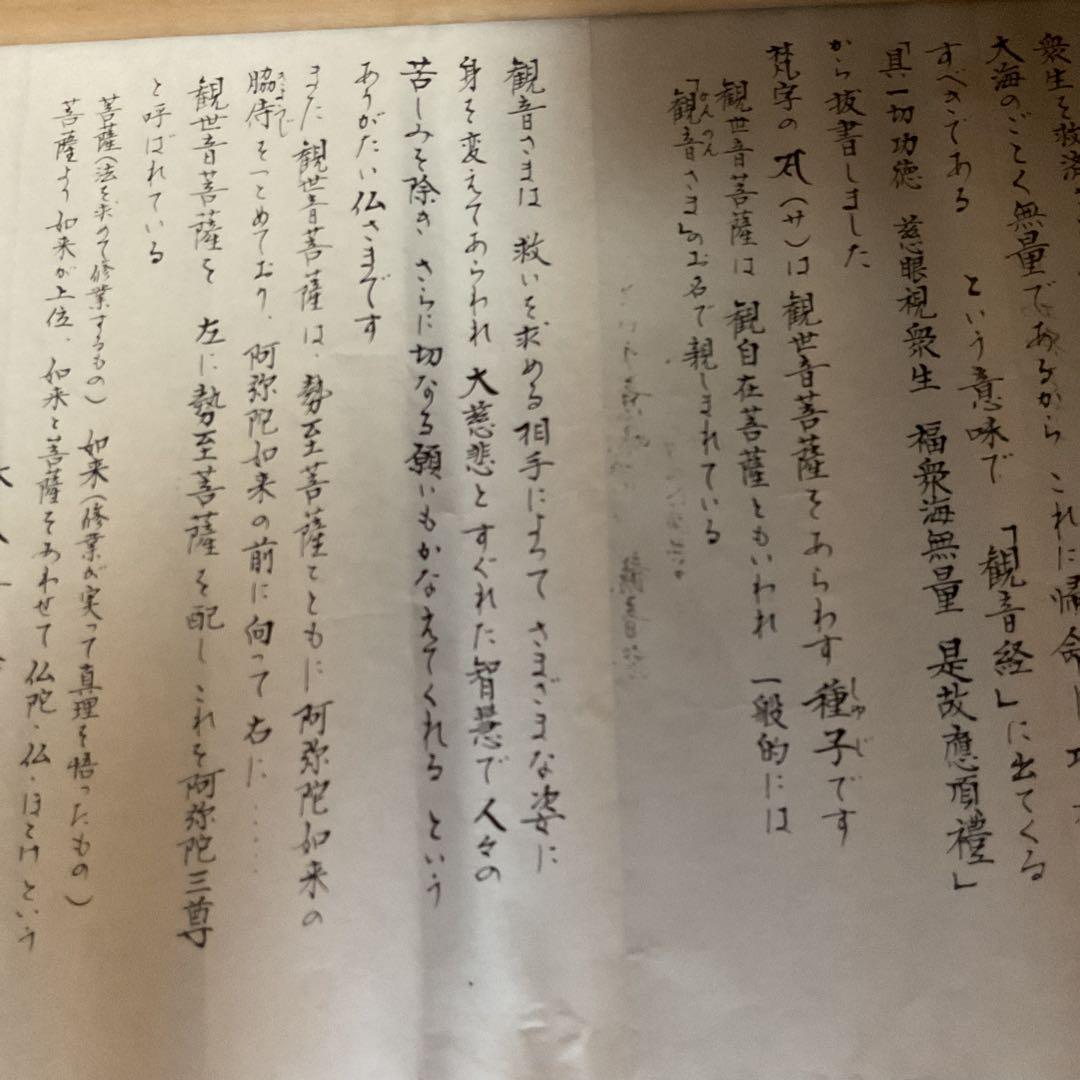 衆生を救済
大海のごとく無量であるから これに帰命し
すべきである という意味で 「観音経」に出てくる
「具一切功徳 慈眼視衆生 福衆海無量 是故應頂禮」
から抜書しました
梵字の (サ)は 観世音菩薩をあらわす 種子です
しゅじ
観世音菩薩は 観自在菩薩ともいわれ 一般的には
「観音さま」のお名で親しまれている
かんのん
観音さまは 救いを求める相手によって さまざまな姿に
身を変えてあらわれ 大慈悲とすぐれた智慧で人々の
苦しみを除き さらに切なる願いもかなえてくれる という
ありがたい仏さまです
また 観世音菩薩は、勢至菩薩とともに 阿弥陀如来の
脇侍をつとめており、阿弥陀如来の前に向って 右に・・・・・
きょうじ
観世音菩薩を 左に勢至菩薩を配し これを阿弥陀三尊
と呼ばれている
菩薩(法を求めて修業するもの) 如来(修業が実って真理を悟ったもの)
菩薩より如来が上位、如来と菩薩をあわせて仏陀・仏・ほとけという